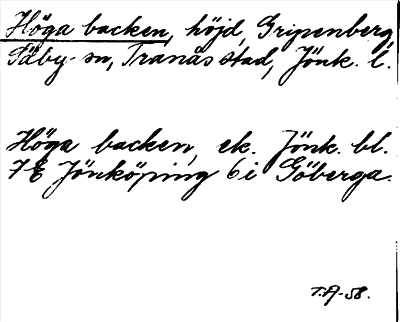 Höga backen, höjd, Gripenberg,
Säby sn, Tranås stad, Jönk. l.
Höga backen, ek. Jönk. bl.
7E Jönköping 6i Göberga.
T.A-58.